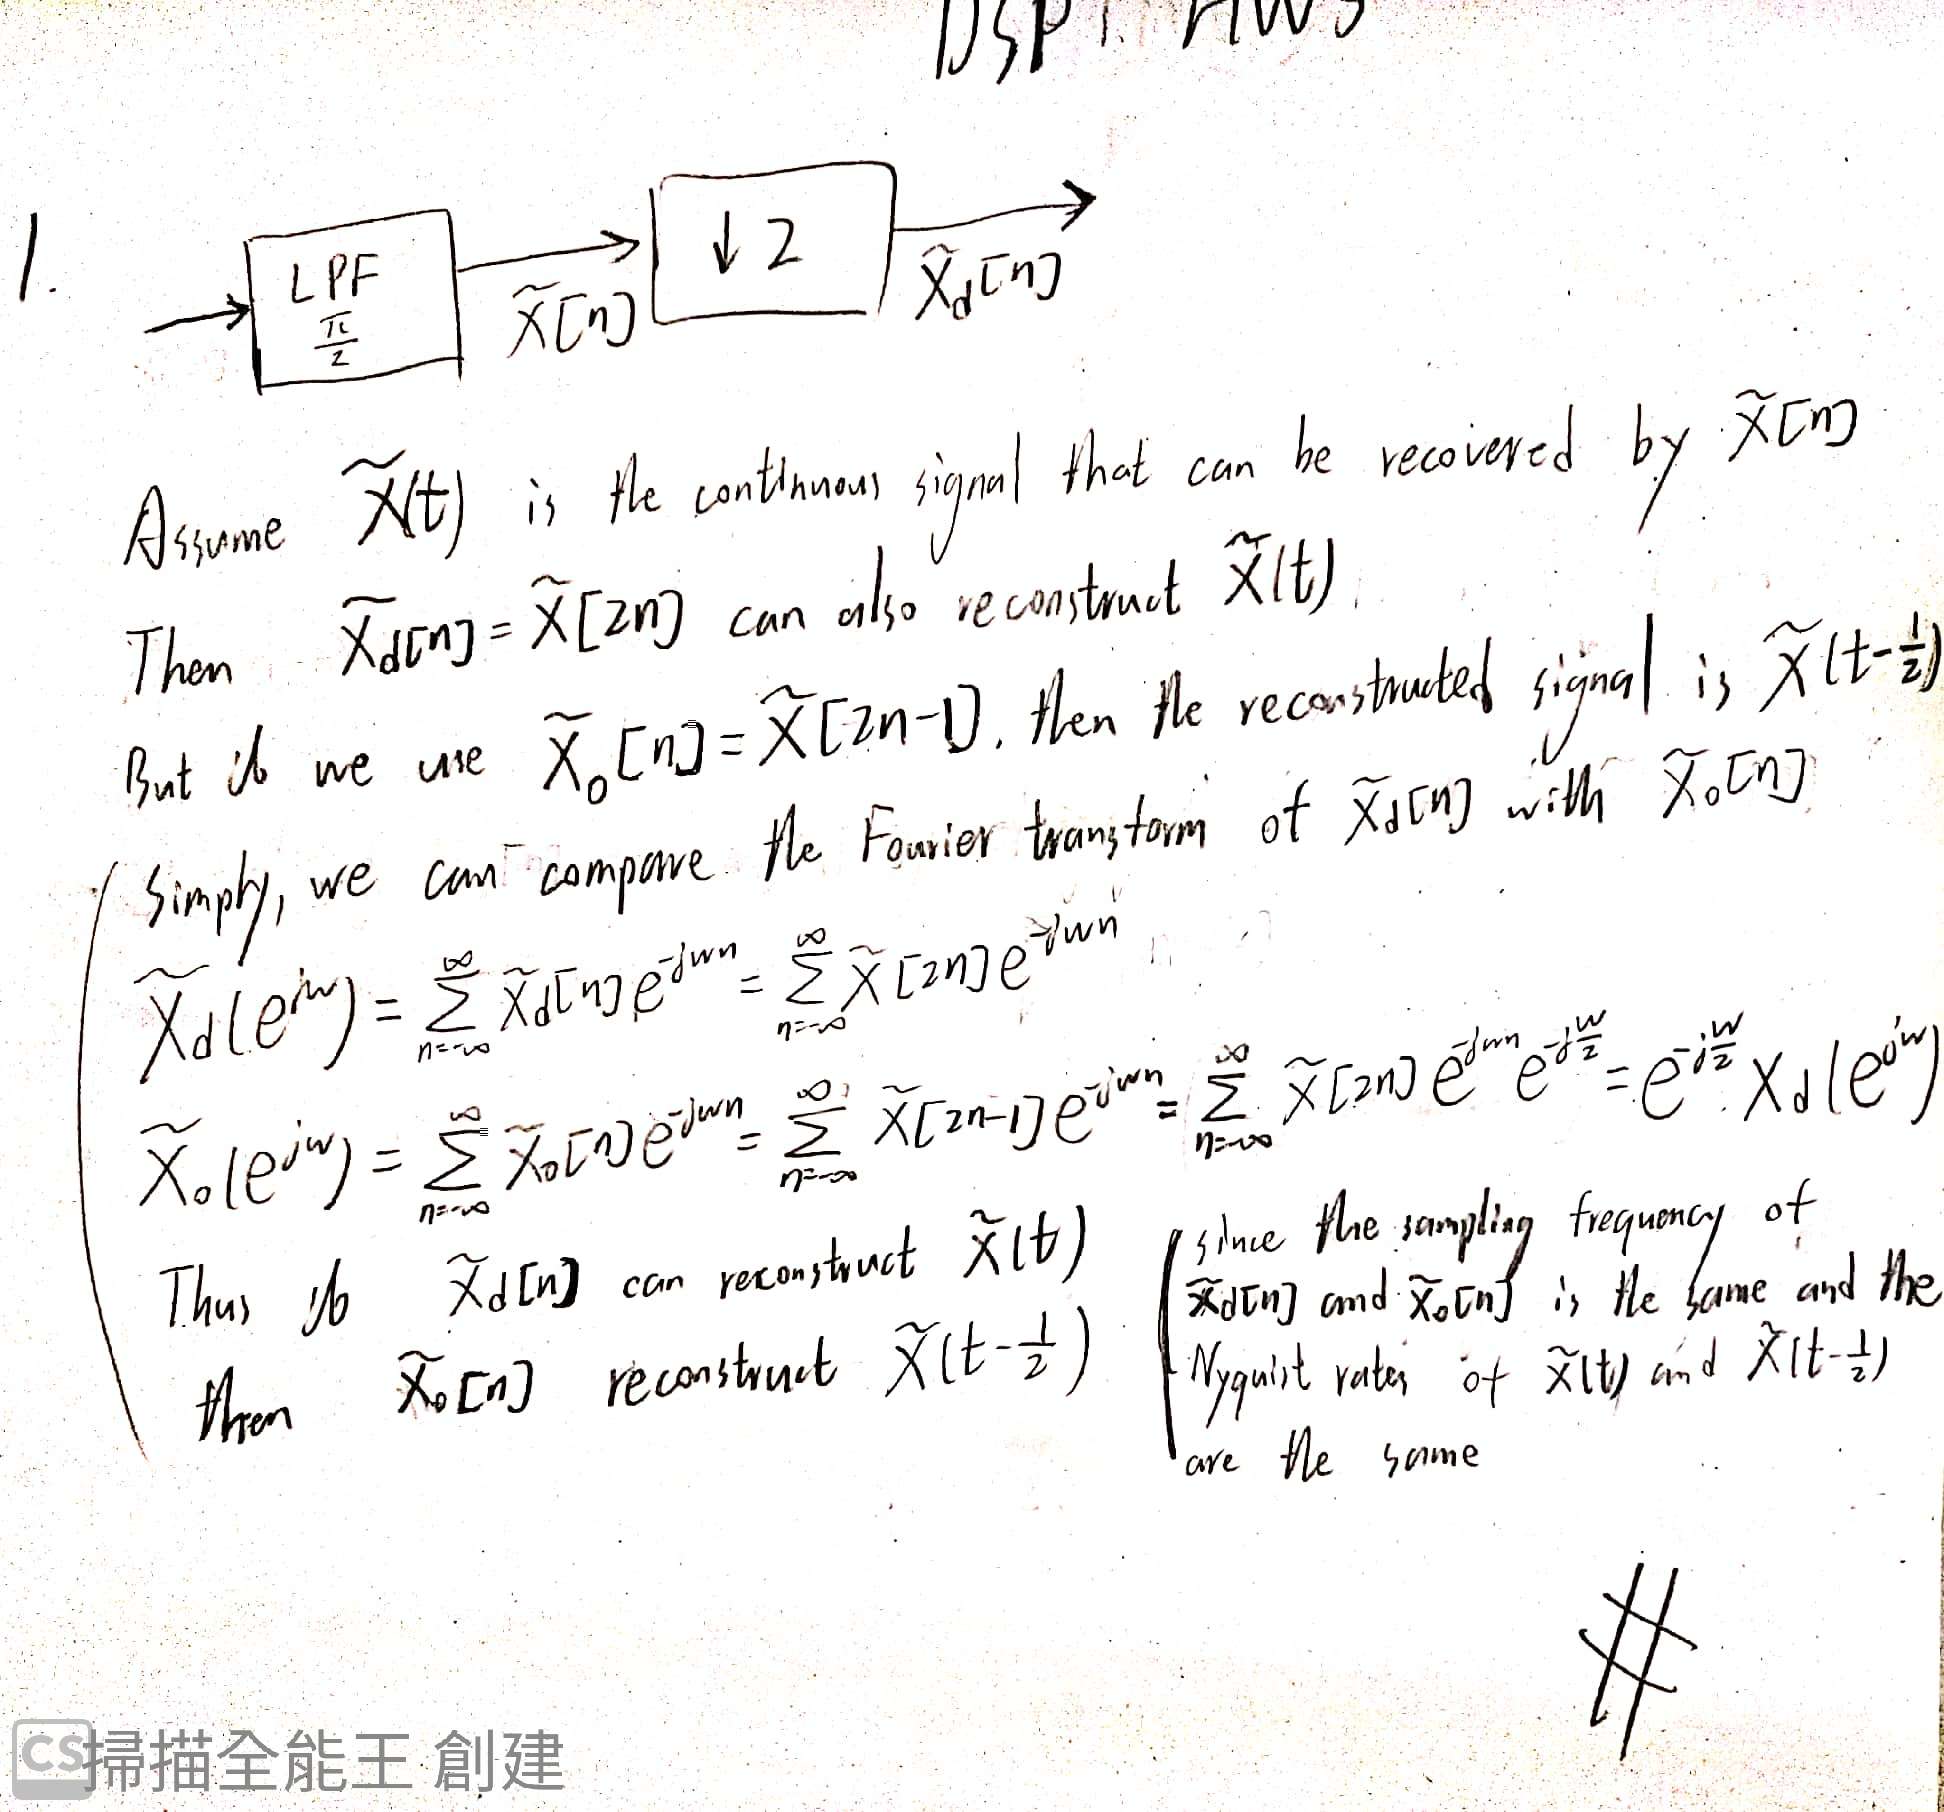 DSP1 HW3
1.
LPF
π/2
x̃[n]
↓2
x̃_d[n]
Assume x̃(t) is the continuous signal that can be recoivered by x̃[n]
Then x̃_d[n] = x̃[2n] can also reconstruct x̃(t)
But if we use x̃_o[n] = x̃[2n-1], then the reconstructed signal is x̃(t-1/2)
Simply, we can compare the Fourier transform of x̃_d[n] with x̃_o[n]
X̃_d(e^{jw}) = Σ_{n=-∞}^{∞} x̃_d[n]e^{-jwn} = Σ_{n=-∞}^{∞} x̃[2n]e^{-jwn}
X̃_o(e^{jw}) = Σ_{n=-∞}^{∞} x̃_o[n]e^{-jwn} = Σ_{n=-∞}^{∞} x̃[2n-1]e^{-jwn} = Σ_{n=-∞}^{∞} x̃[2n]e^{-jwn}e^{-j w/2} = e^{-j w/2} X_d(e^{jw})
Thus if x̃_d[n] can reconstruct x̃(t)
then x̃_o[n] reconstruct x̃(t-1/2)
since the sampling frequency of
x̃_d[n] and x̃_o[n] is the same and the
Nyquist rates of x̃(t) and x̃(t-1/2)
are the same
#
CS掃描全能王 創建